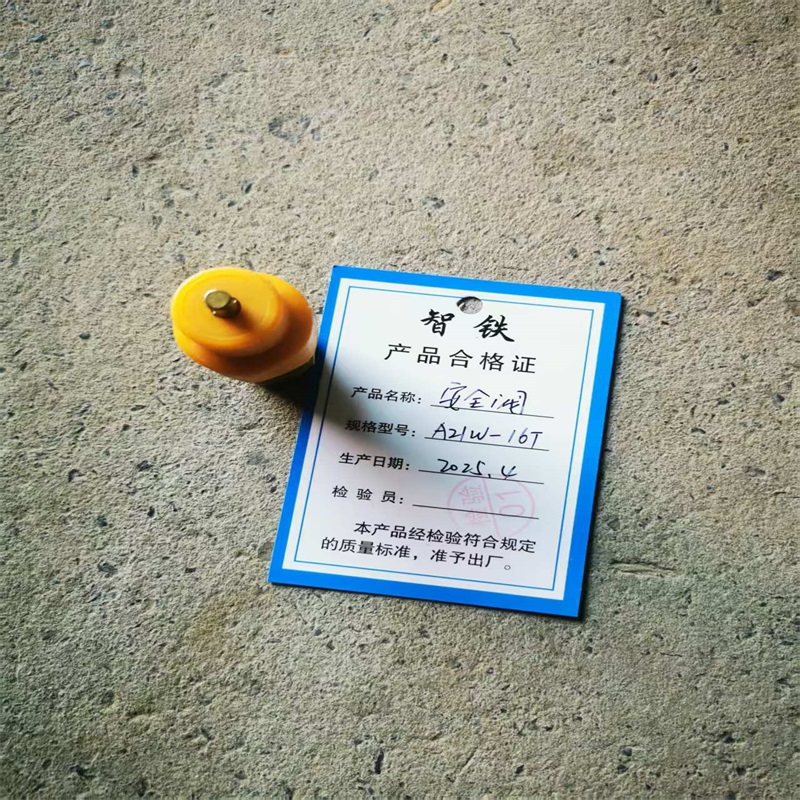 智铁
产品合格证
产品名称：安全阀
规格型号：A21W-16T
生产日期：2025.4
检验员：
本产品经检验符合规定
的质量标准，准予出厂。